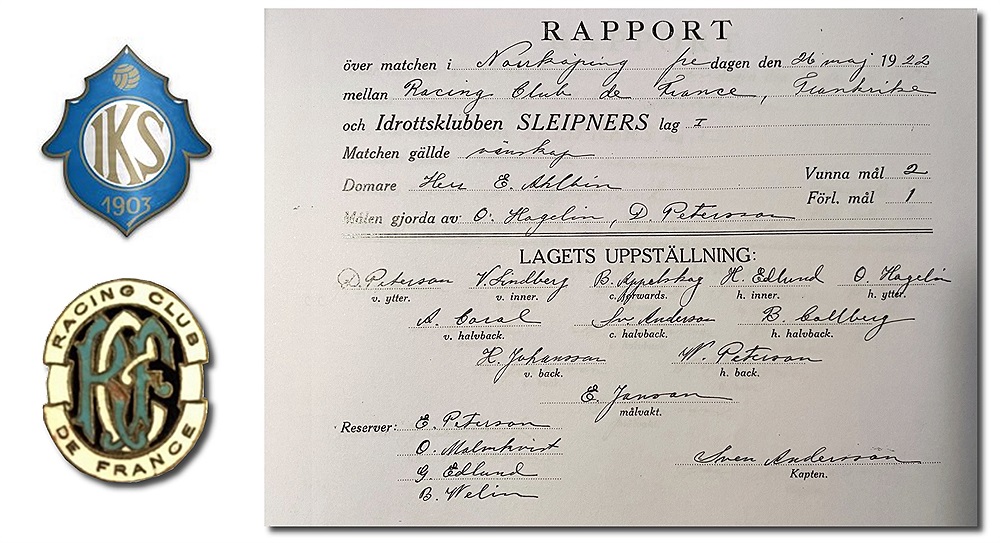 IKS
1903
RACING CLUB
RCF
DE FRANCE
RAPPORT
över matchen i Norrköping fredagen den 26 maj 1922
mellan Racing Club de France, Frankrike
och Idrottsklubben SLEIPNERS lag I
Matchen gällde vänskap
Domare Herr E. Ahlbin Vunna mål 2
Förl. mål 1
Målen gjorda av O. Hagelin, D. Petersson
LAGETS UPPSTÄLLNING:
D. Peterson V. Lindberg B. Appelskog H. Edlund O. Hagelin
v. ytter. v. inner. c. forwards. h. inner. h. ytter.
A. Coral Sv. Anderson B. Collberg
v. halvback. c. halvback. h. halvback.
H. Johansson W. Peterson
v. back. h. back.
E. Janson
målvakt.
Reserver: E. Peterson
O. Malmkvist
G. Edlund
B. Welin
Sven Andersson
Kapten.